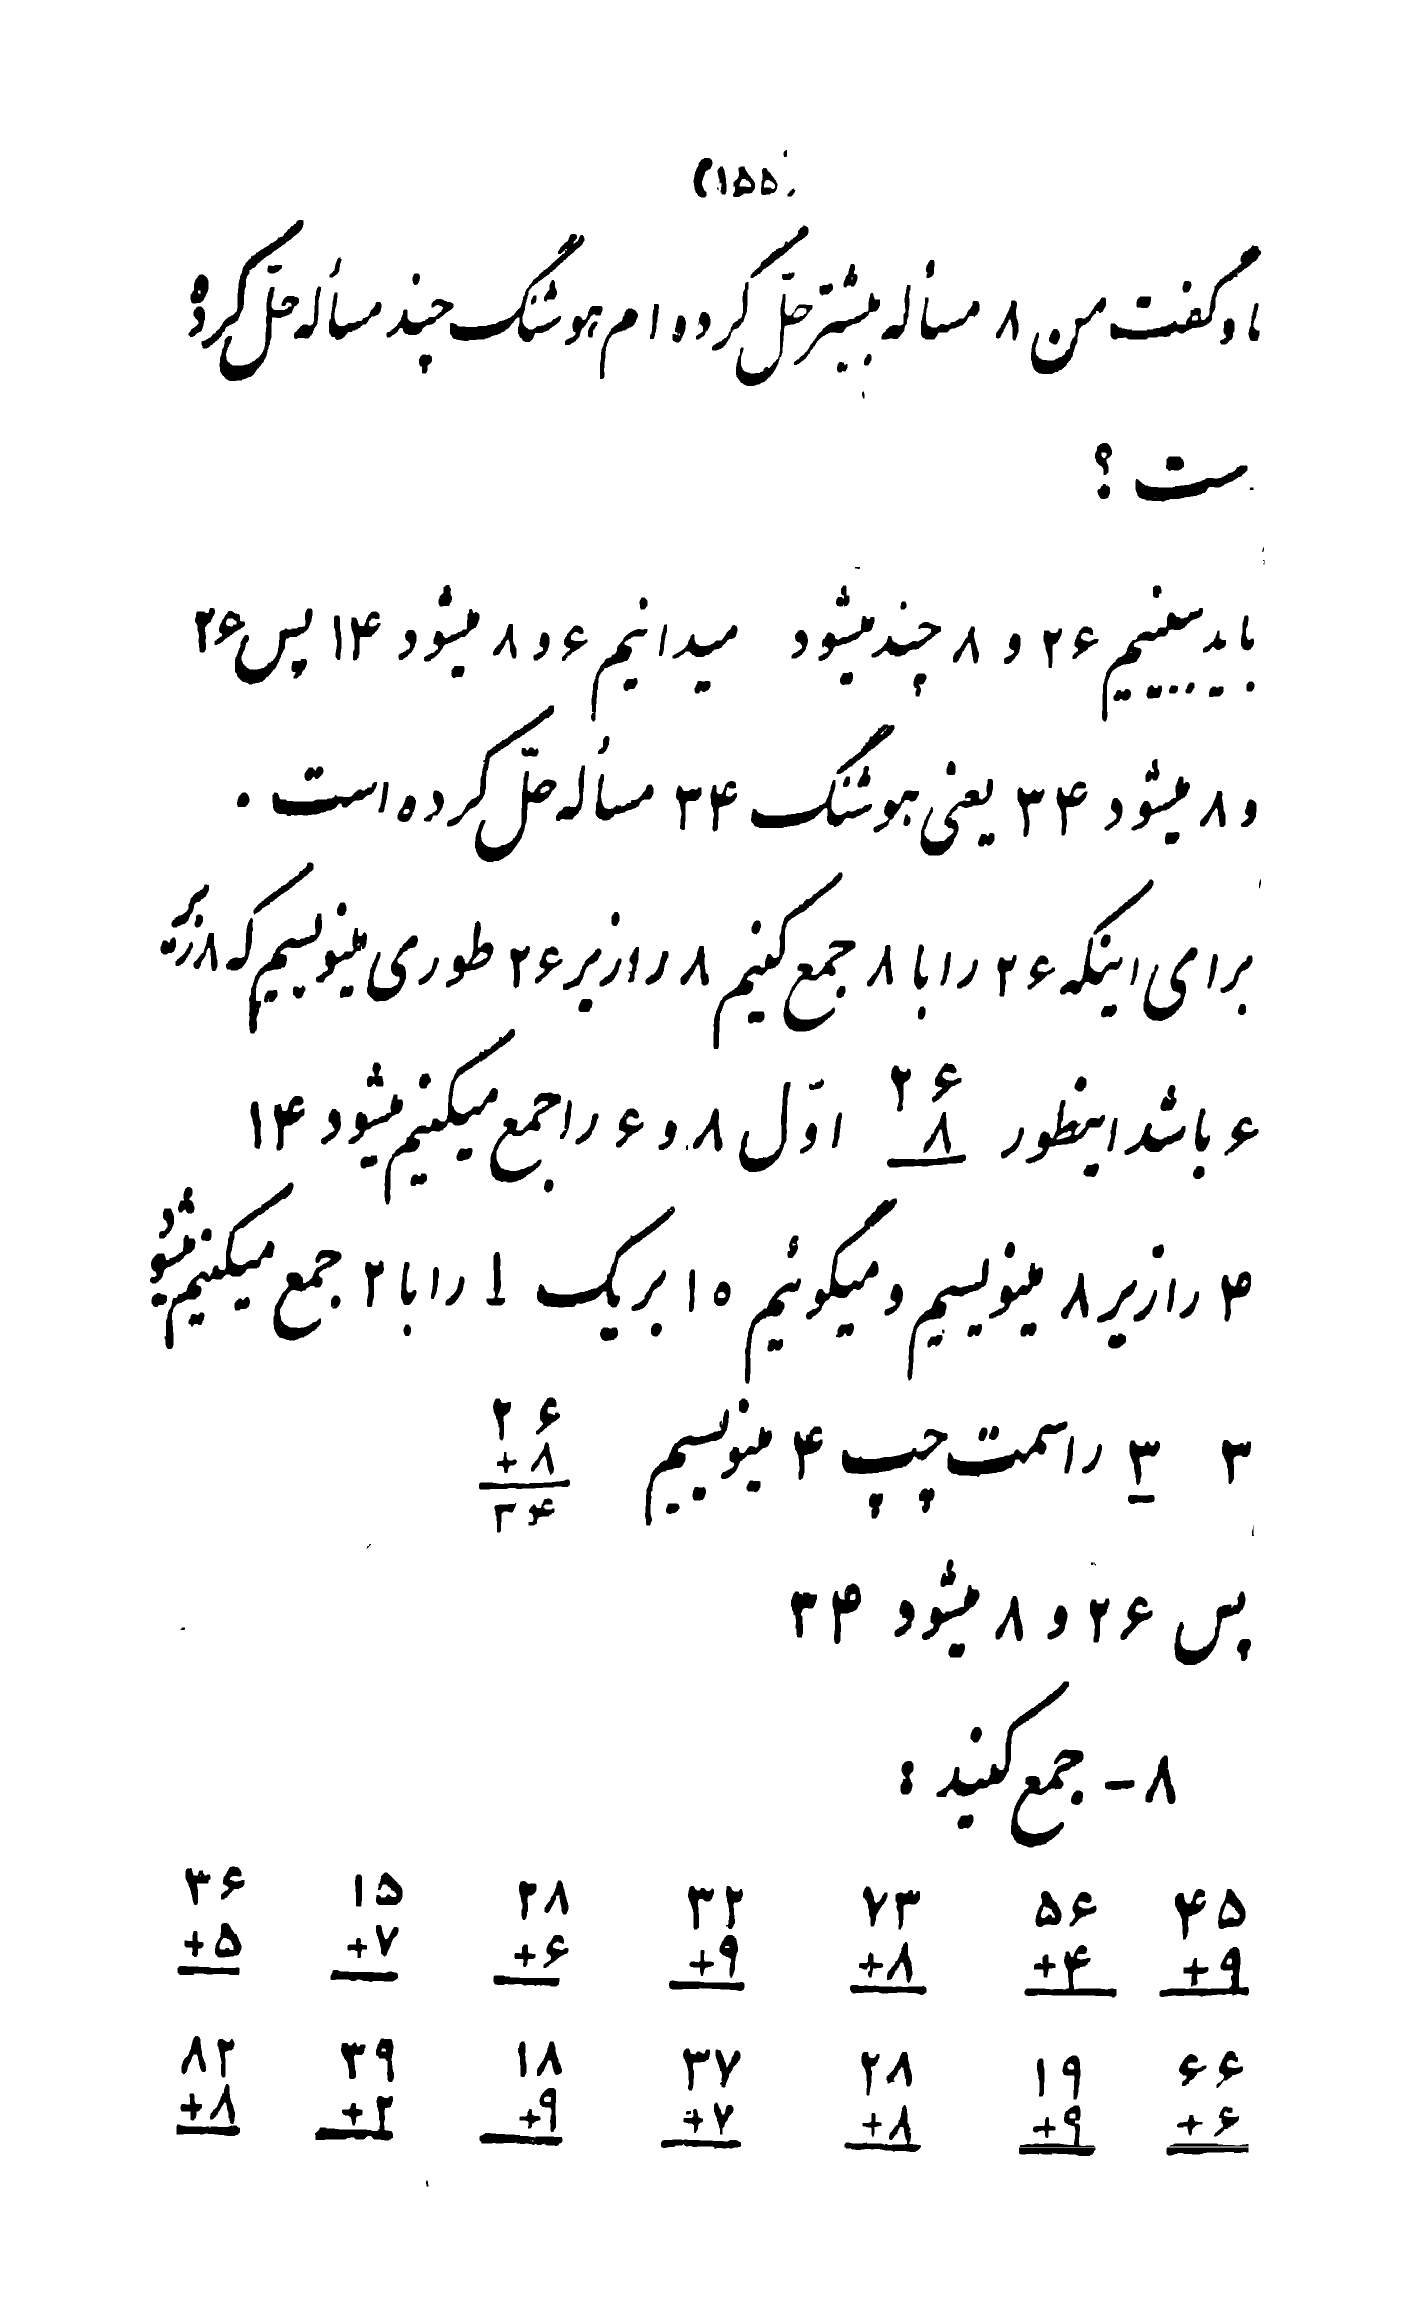 (۱۵۵)
ما و گفت من ۸ مسأله بیشتر حلّ کرده ام هوشنگ چند مسأله حلّ کرده
ست ؟
باید ببینیم ۲۶ و ۸ چند میشود میدانیم ۶ و ۸ میشود ۱۴ پس ۲۶
و ۸ میشود ۳۴ یعنی هوشنگ ۳۴ مسأله حلّ کرده است .
برای اینکه ۲۶ را با ۸ جمع کنیم ۸ را زیر ۲۶ طوری مینویسیم که ۸ زیر
۲۶
۶ باشد اینطور ۸ اوّل ۸ و ۶ را جمع میکنیم میشود ۱۴
۴ را زیر ۸ مینویسیم و میگوئیم ۱۰ بر یک ۱ را با ۲ جمع میکنیم میشود
۳ ۳ را سمت چپ ۴ مینویسیم
۲۶
+۸
۳۴
پس ۲۶ و ۸ میشود ۳۴
۸ - جمع کنید :
۴۵ ۵۶ ۷۳ ۳۲ ۲۸ ۱۵ ۳۶
+۹ +۴ +۸ +۹ +۶ +۷ +۵
۶۶ ۱۹ ۲۸ ۳۷ ۱۸ ۳۹ ۸۲
+۶ +۹ +۸ +۷ +۹ +۲ +۸